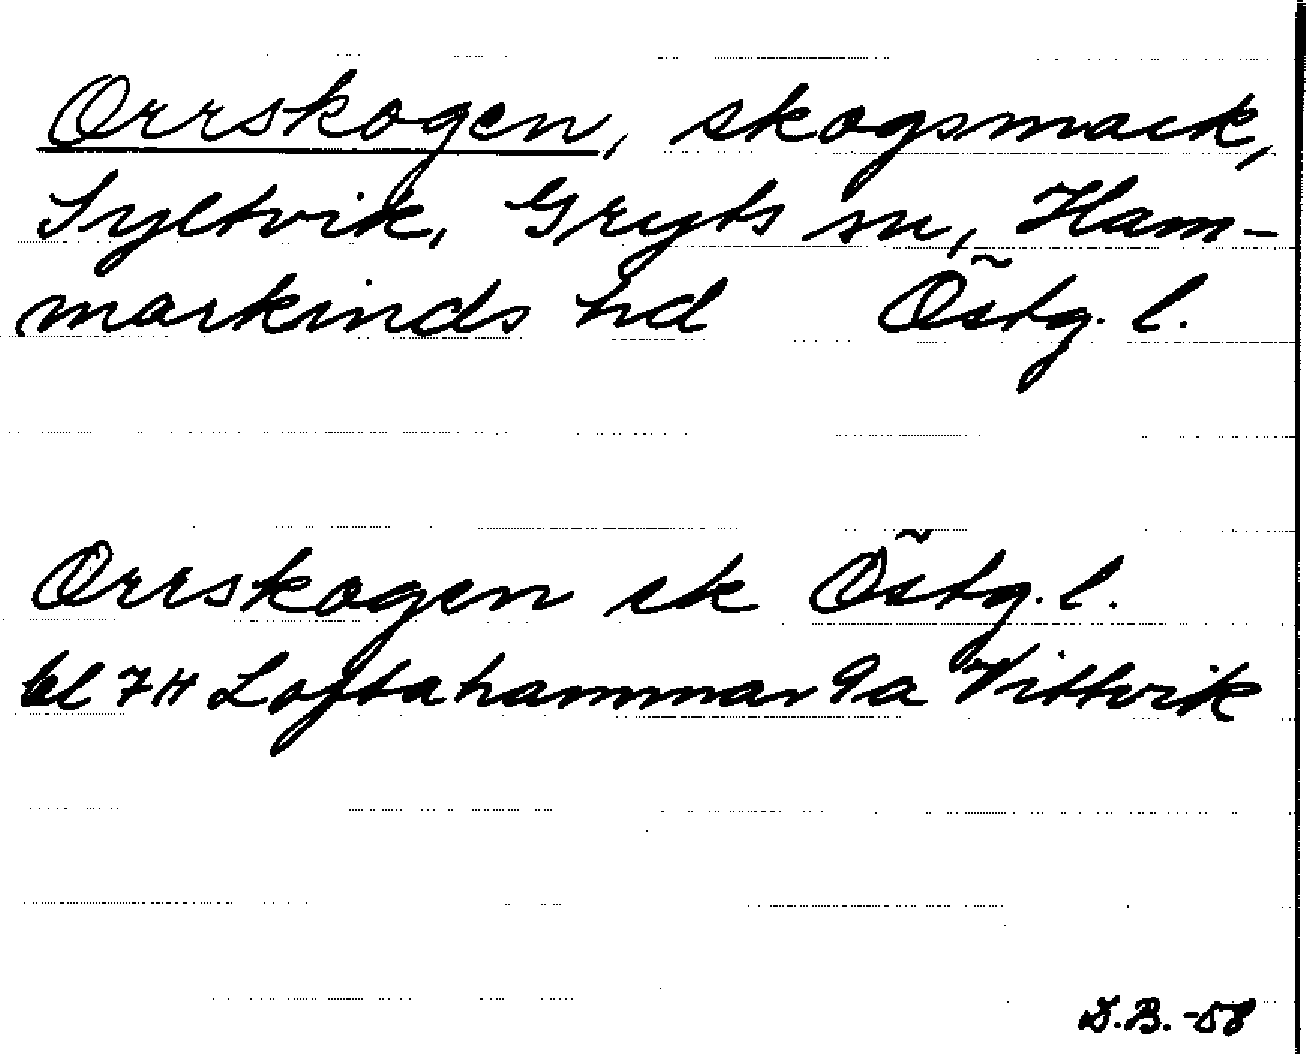 Orrskogen, skogsmark,
Syltvik, Gryts sn, Ham-
markinds hd Östg. l.
Orrskogen ek Östg. l.
bl 7H Loftahammar 9a Vittvik
D.B. -58